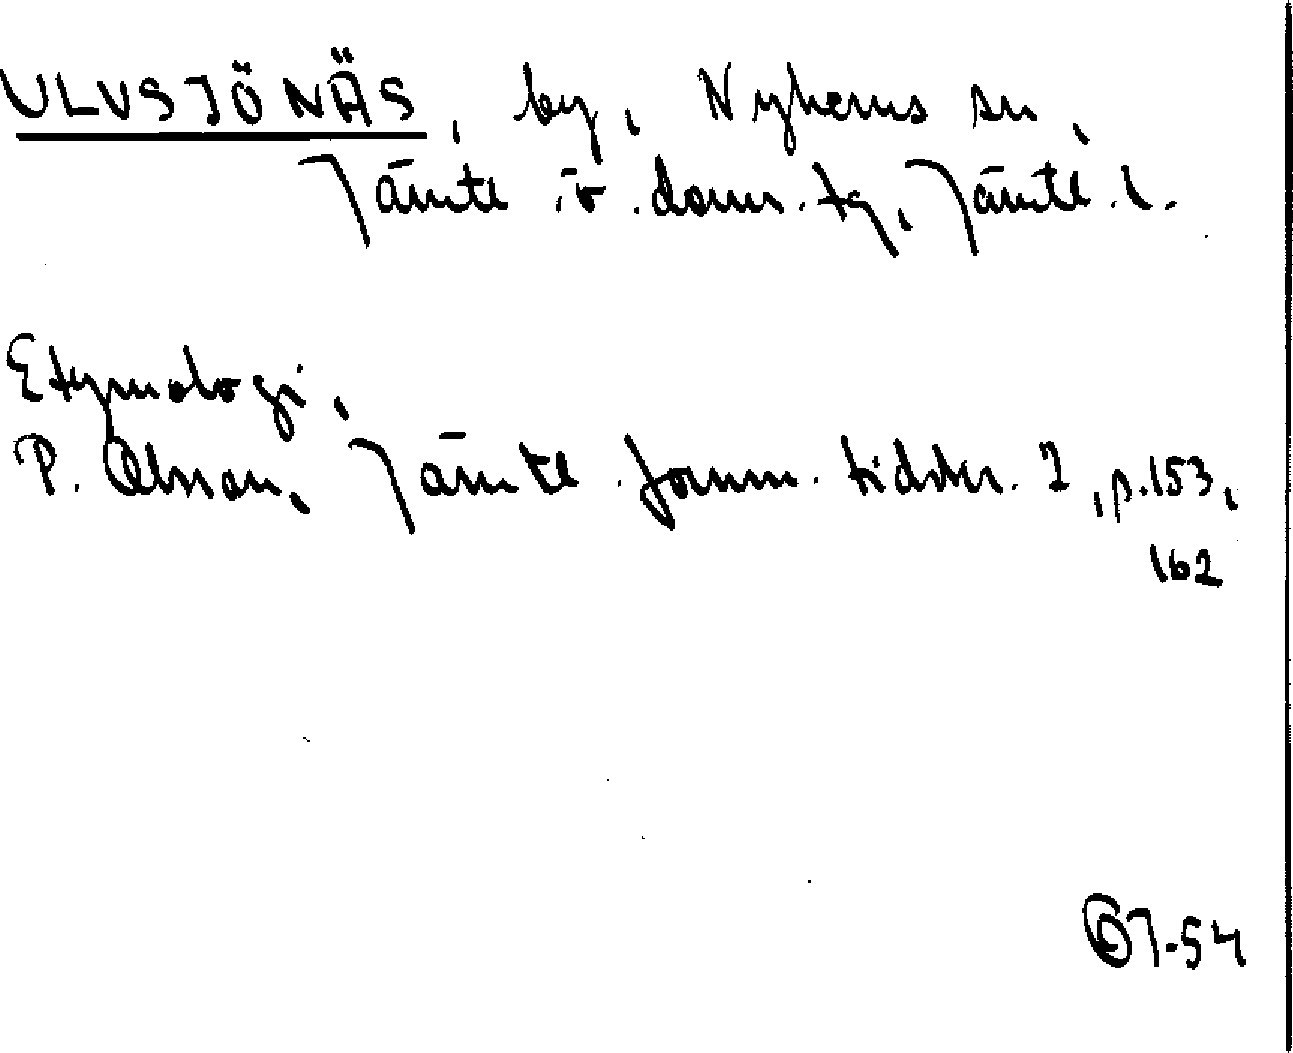 ULVSJÖNÄS, by, Nyhems sn,
Jämtl. ö. doms. tg, Jämtl. l.
Etymologi,
P. Olsson, Jämtl. fornm. tidskr. 2, p. 153,
162